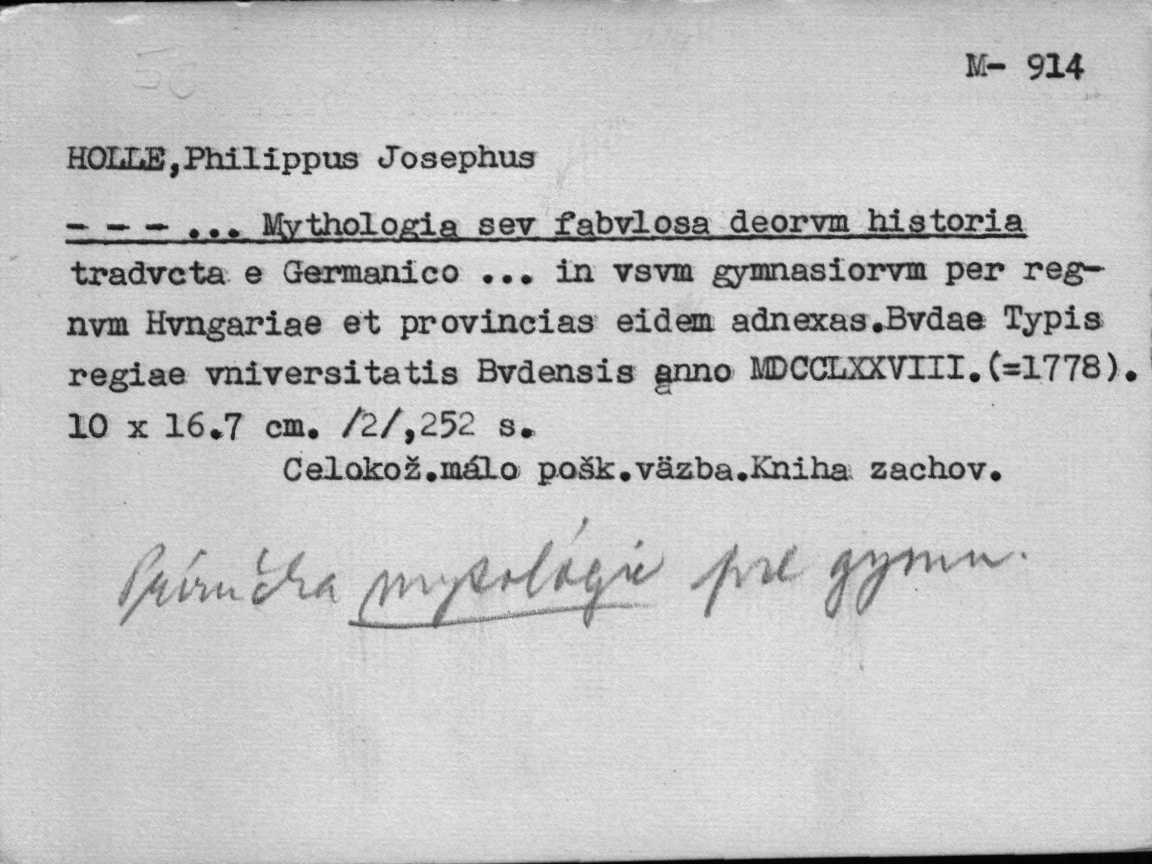 M- 914
HOLLE,Philippus Josephus
- - - ... Mythologia sev fabvlosa deorvm historia
tradvcta e Germanico ... in vsvm gymnasiorvm per reg-
nvm Hvngariae et provincias eidem adnexas.Bvdae Typis
regiae vniversitatis Bvdensis anno MDCCLXXVIII.(=1778).
10 x 16.7 cm. /2/,252 s.
Celokož.málo pošk.väzba.Kniha zachov.
Príručka mytológie pre gymn.